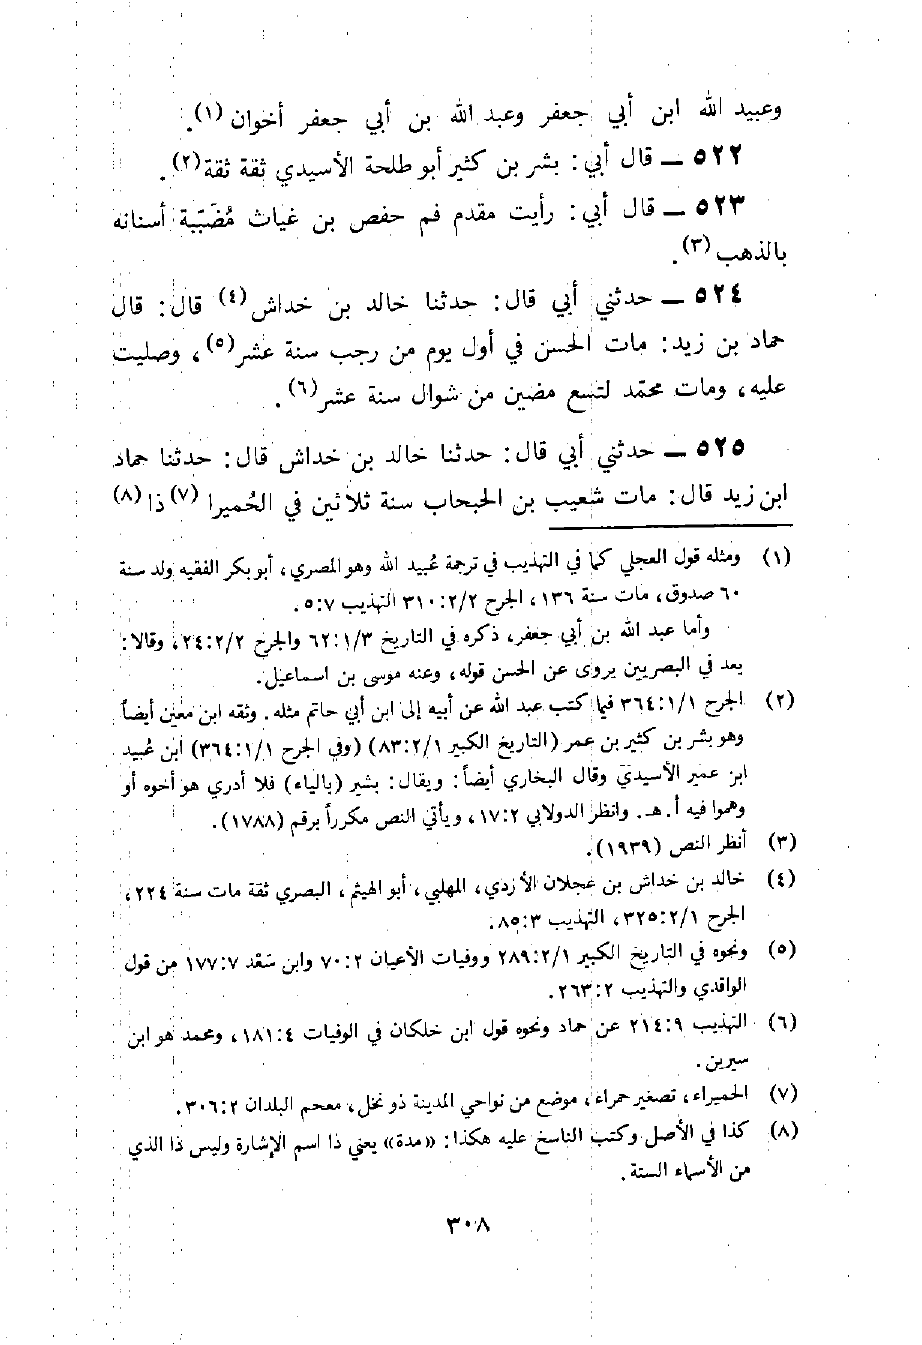 وعبيد الله ابن أبي جعفر وعبد الله بن أبي جعفر أخوان (١).
٥٢٢ ــ قال أبي: بشر بن كثير أبو طلحة الأسيدي ثقة ثقة (٢).
٥٢٣ ــ قال أبي: رأيت مقدم فم حفص بن غياث مُضَبّبة أسنانه
بالذهب (٣).
٥٢٤ ــ حدثني أبي قال: حدثنا خالد بن خداش (٤) قال: قال
حماد بن زيد: مات الحسن في أول يوم من رجب سنة عشر (٥)، وصليت
عليه، ومات محمّد لتسع مضين من شوال سنة عشر (٦).
٥٢٥ ــ حدثني أبي قال: حدثنا خالد بن خداش قال: حدثنا حماد
ابن زيد قال: مات شعيب بن الحبحاب سنة ثلاثين في الحُميرا (٧) ذا (٨)
(١) ومثله قول العجلي كما في التهذيب في ترجمة عُبيد الله وهو المصري، أبو بكر الفقيه ولد سنة
٦٠ صدوق، مات سنة ١٣٦، الجرح ٣١٠:٢/٢ التهذيب ٥:٧.
وأما عبد الله بن أبي جعفر، ذكره في التاريخ ٦٢:١/٣ والجرح ٢٤:٢/٢، وقالا:
يعد في البصريين يروى عن الحسن قوله، وعنه موسى بن اسماعيل.
(٢) الجرح ٣٦٤:١/١ فيما كتب عبد الله عن أبيه إلى ابن أبي حاتم مثله. وثقه ابن معين أيضاً
وهو بشر بن كثير بن عمر (التاريخ الكبير ٨٣:٢/١) (وفي الجرح ٣٦٤:١/١) ابن عُبيد
ابن عمير الأسيدي وقال البخاري أيضاً: ويقال: بشير (بالياء) فلا أدري هو أخوه أو
وهموا فيه أ. هـ. وانظر الدولابي ١٧:٢، ويأتي النص مكرراً برقم (١٧٨٨).
(٣) أنظر النص (١٩٣٩).
(٤) خالد بن خداش بن عجلان الأزدي، المهلبي، أبو الهيثم، البصري ثقة مات سنة ٢٢٤،
الجرح ٣٢٥:٢/١، التهذيب ٨٥:٣.
(٥) ونحوه في التاريخ الكبير ٢٨٩:٢/١ ووفيات الأعيان ٧٠:٢ وابن سَعْد ١٧٧:٧ من قول
الواقدي والتهذيب ٢٦٣:٢.
(٦) التهذيب ٢١٤:٩ عن حماد ونحوه قول ابن خلكان في الوفيات ١٨١:٤، ومحمد هو ابن
سيرين.
(٧) الحميراء، تصغير حمراء، موضع من نواحي المدينة ذو نخل، معجم البلدان ٣٠٦:٢.
(٨) كذا في الأصل وكتب الناسخ عليه هكذا: «مدة» يعني ذا اسم الإشارة وليس ذا الذي
من الأسماء الستة.
٣٠٨